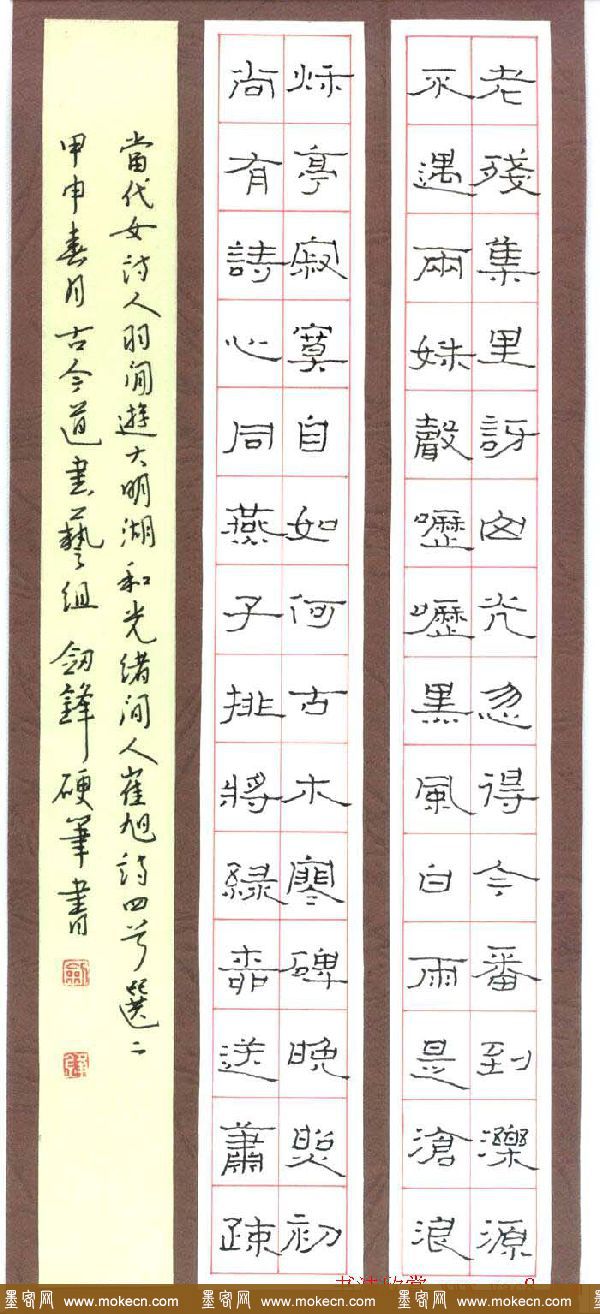 老殘集里訝光忽得今番到濼源
不遇兩姝聲嚦嚦黑風白雨是滄浪
秌亭寂寞自如何古木寒碑晚照初
尚有詩心同燕子排將綠送蕭疎
當代女詩人羽閒遊大明湖和光緒間人崔旭詩四首選二
甲申春月古今道書藝組 劍鋒硬筆書
劍
鋒
书法欣赏
墨客网 www.mokecn.com 墨客网 www.mokecn.com 墨客网 www.mokecn.com